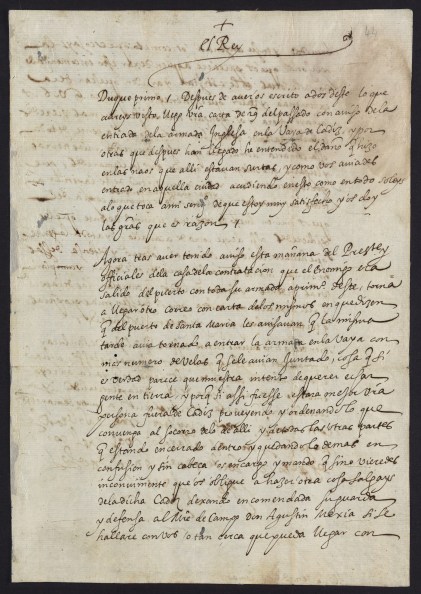 +
El Rey
Duque primo. Despues de averos escrito a dos deste lo que
avreys visto, llego vra carta de 29 del passado con aviso de la
entrada de la armada Inglesa en la Vaya de Cadiz, y por
otras que despues han llegado he entendido el daño q hizo
en las naos que alli estavan surtas, y como vos aviades
entrado en aquella ciudad acudiendo en esto como en todo soleys
a lo que toca a mi servi de que estoy muy satisfecho y os doy
las gras que es razon
Agora tras aver tenido aviso esta mañana del Presste y
officiales de la casa de la contratacion que el Enemigo era
salido del puerto con toda su armada a primo deste, torna
a llegar otro correo con carta de los mismos en que dizen
q del puerto de Santa Maria les avisavan q la misma
tarde avia tornado a entrar la armada en la Vaya con
mas numero de velas q se le avian Juntado, cosa q si
es verdad parece que muestra intento de querer echar
gente en tierra, y porq si assi fuesse estara mejor vra
persona fuera de Cadiz proveyendo y ordenando lo que
convenga al socorro de lo de alli y de todas las otras partes
q estando encerrado adentro y quedando lo demas en
confusion y sin cabeça os encargo y mando q si no vieredes
inconviniente que os oblique a hazer otra cosa salgays
de la dicha Cadiz dexando encomendada su guarda
y defensa al Mre de Campo don Agustin Mexia si se
hallare con vos o tan cerca que pueda llegar con